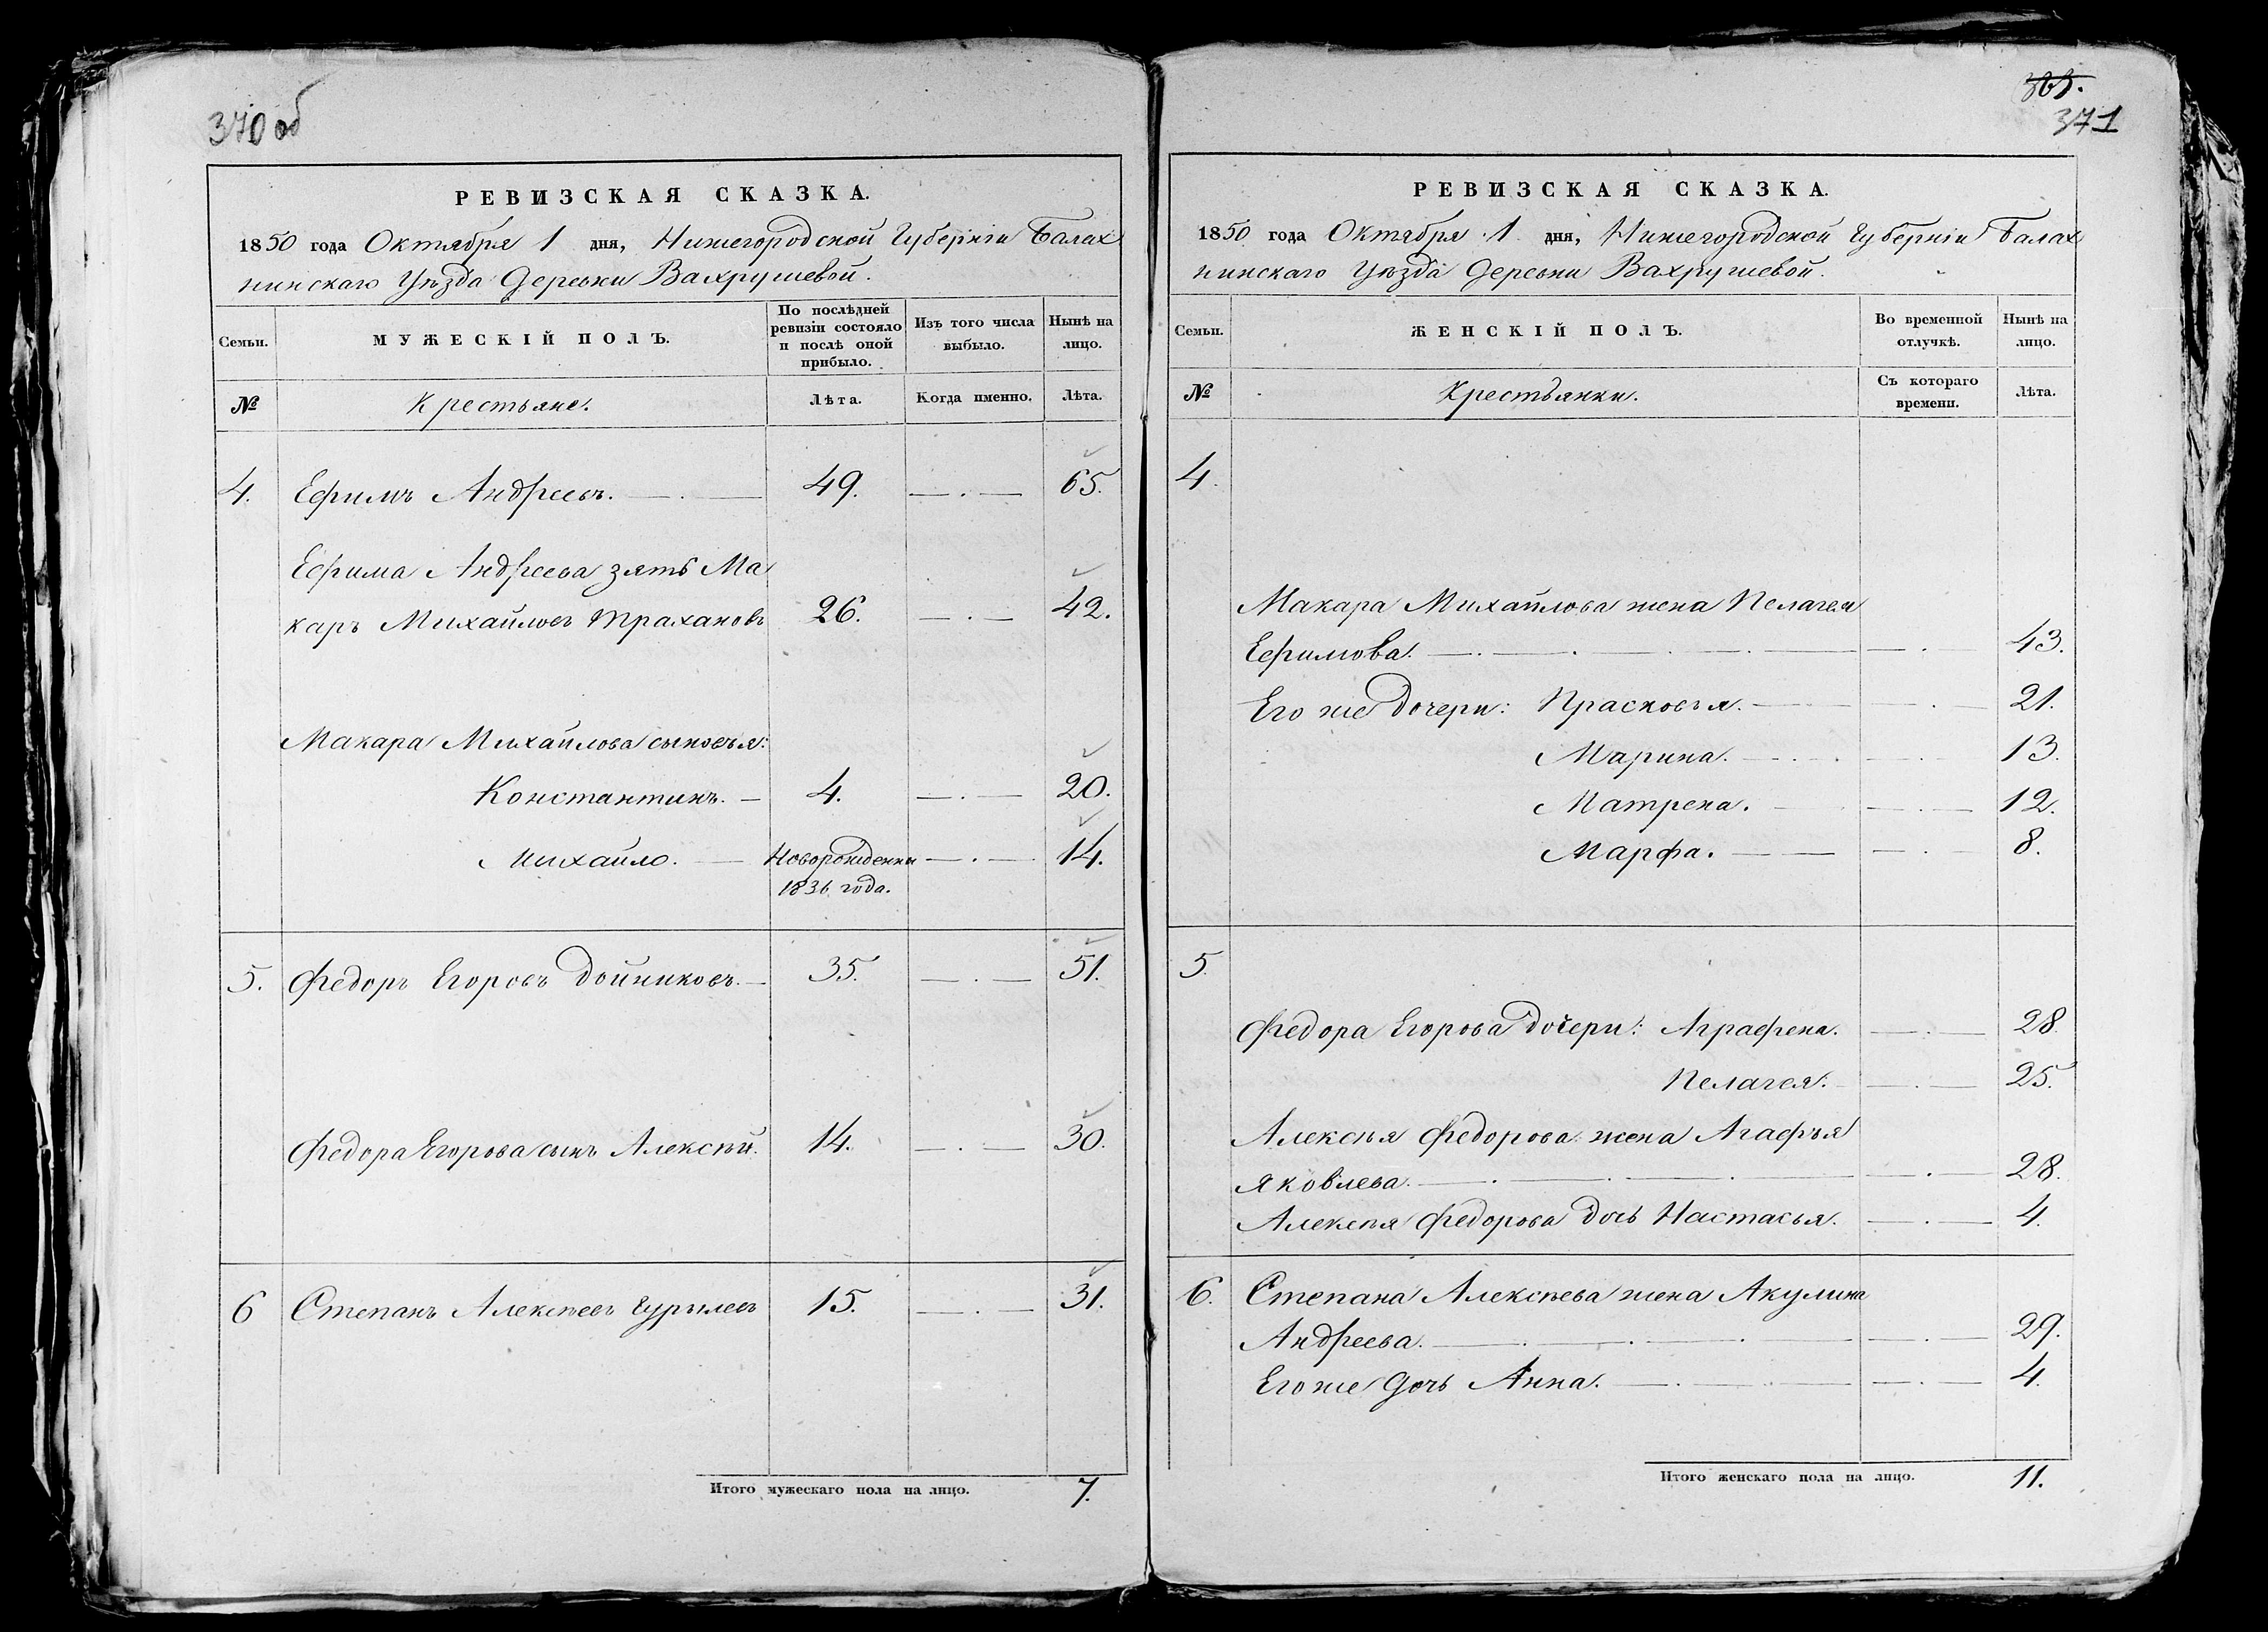 370 об
РЕВИЗСКАЯ СКАЗКА.
1850 года Октября 1 дня, Нижегородской Губерніи Балах
нинскаго Уѣзда Деревни Вахрушевой.
Семьи.
МУЖЕСКІЙ ПОЛЪ.
По послѣдней
ревизіи состояло
и послѣ оной
прибыло.
Изъ того числа
выбыло.
Нынѣ на
лицо.
№
Крестьяне.
Лѣта.
Когда именно.
Лѣта.
4. Ефимъ Андреевъ. 49. 65.
Ефима Андреева зять Ма
каръ Михайловъ Трахановъ 26. 42.
Макара Михайлова сыновья:
Константинъ. 4. 20.
Михайло. Новорожденны 14.
1836 года.
5. Федоръ Егоровъ Дойниковъ. 35. 51.
Федора Егорова сынъ Алексѣй. 14. 30.
6 Степанъ Алексѣевъ 15. 31.
Итого мужескаго пола на лицо. 7.
371
РЕВИЗСКАЯ СКАЗКА.
1850 года Октября 1 дня, Нижегородской Губерніи Балах
нинскаго Уѣзда Деревни Вахрушевой.
Семьи.
ЖЕНСКІЙ ПОЛЪ.
Во временной
отлучкѣ.
Нынѣ на
лицо.
№
Крестьянки.
Съ котораго
времени.
Лѣта.
4.
Макара Михайлова жена Пелагея
Ефимова. 43.
Его же дочери: Прасковья. 21.
Марина. 13.
Матрена. 12.
Марфа. 8.
5.
Федора Егорова дочери: Аграфена. 28.
Пелагея. 25.
Алексѣя Федорова жена Агафья
Яковлева. 28.
Алексѣя Федорова дочь Настасья. 4.
6. Степана Алексѣева жена Акулина
Андреева. 29.
Его же дочь Анна. 4.
Итого женскаго пола на лицо. 11.